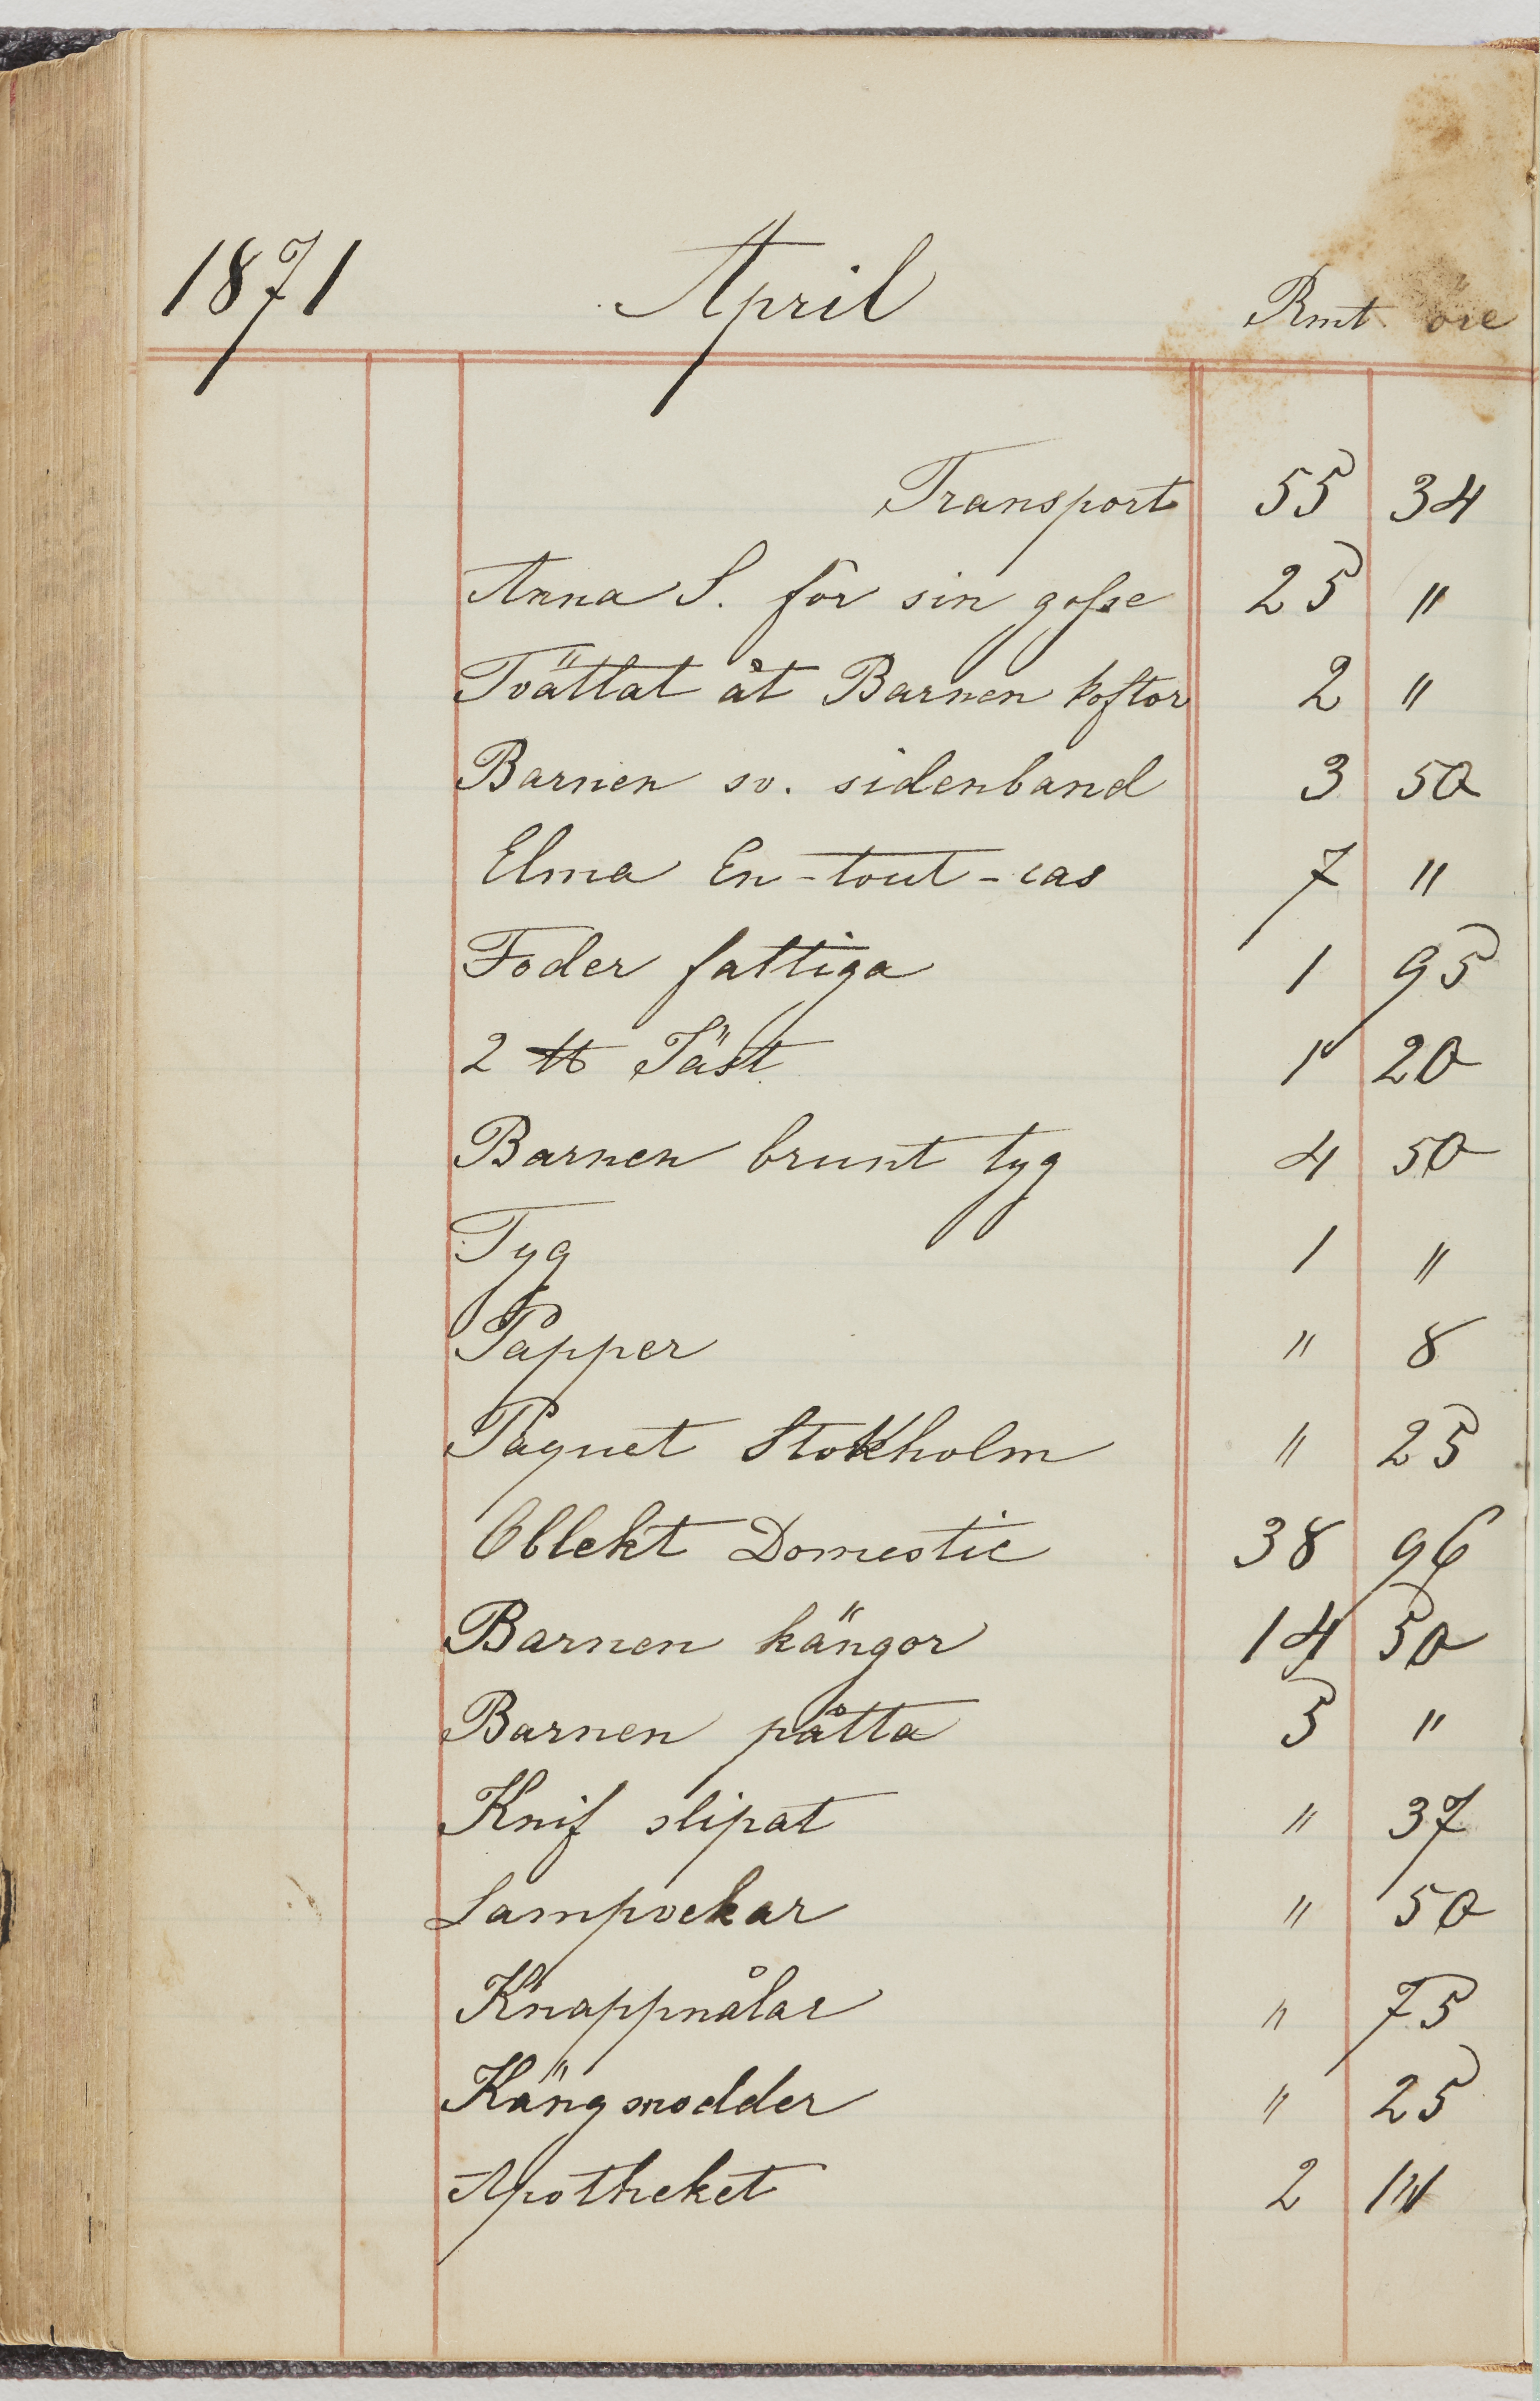 1871 April Rmt öre
Transport 55 34
Anna S. för sin gosse 25 "
Tvättat åt Barnen koftor 2 "
Barnen sv. sidenband 3 50
Elma En-tout-cas 7 "
Foder fattiga 1 95
2 ℔ Jäst 1 20
Barnen brunt tyg 4 50
Tyg 1 "
Papper " 8
Paquet Stokholm " 25
Oblekt Domestic 38 96
Barnen kängor 14 50
Barnen påtta 5 "
Knif slipat " 37
Lampvekar " 50
Knappnålar " 75
Kängsnodder " 25
Apotheket 2